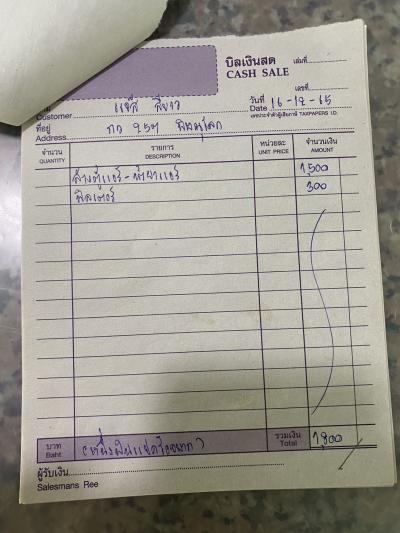 บิลเงินสด เล่มที่
CASH SALE
เลขที่
วันที่ 16-12-65
Date
Customer แซส สีขาว
เลขประจำตัวผู้เสียภาษี TAXPAPERS I.D.
ที่อยู่ กว 959 พิษณุโลก
Address
จำนวน รายการ หน่วยละ จำนวนเงิน
QUANTITY DESCRIPTION UNIT PRICE AMOUNT
ล้างตู้แอร์-น้ำยาแอร์ 1,500
ฟิลเตอร์ 300
บาท (หนึ่งพันแปดร้อยบาท) รวมเงิน 1,800
Baht Total
ผู้รับเงิน
Salesmans Ree